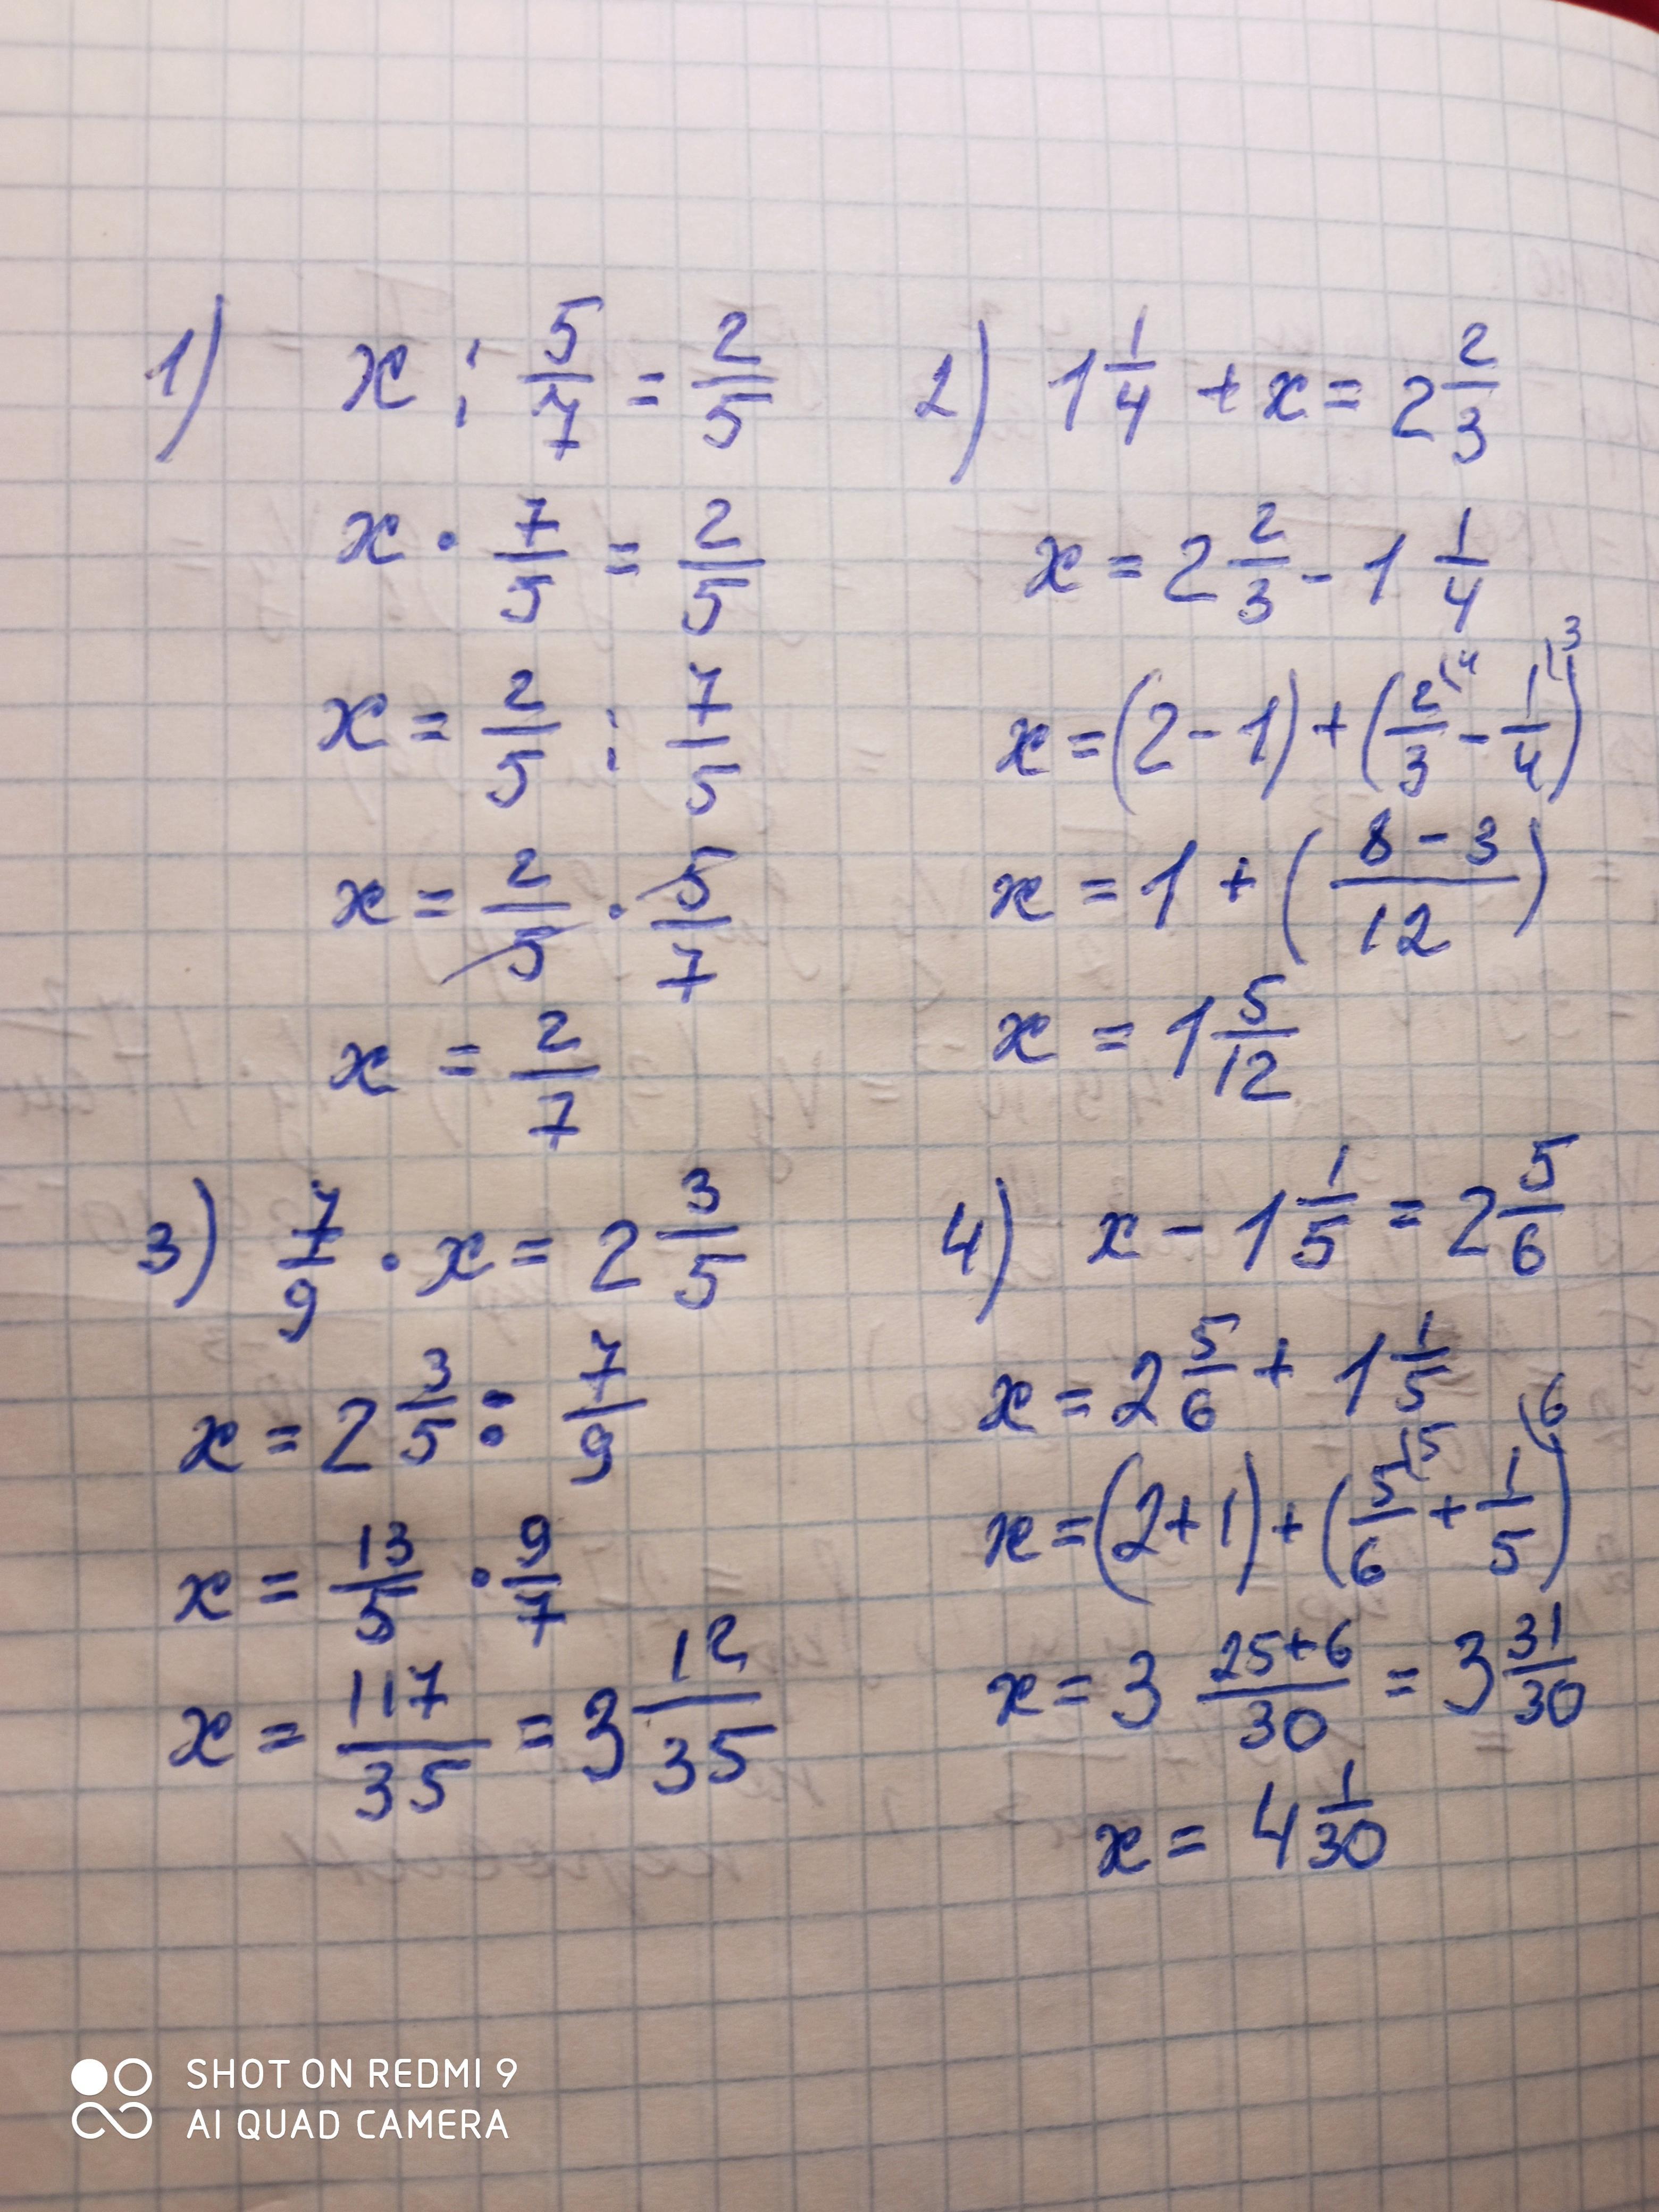 1) x : 5/7 = 2/5
x · 7/5 = 2/5
x = 2/5 : 7/5
x = 2/5 · 5/7
x = 2/7
2) 1 1/4 + x = 2 2/3
x = 2 2/3 - 1 1/4
x = (2 - 1) + (2/3 \4 - 1/4 \3)
x = 1 + (8 - 3/12)
x = 1 5/12
3) 7/9 · x = 2 3/5
x = 2 3/5 : 7/9
x = 13/5 · 9/7
x = 117/35 = 3 12/35
4) x - 1 1/5 = 2 5/6
x = 2 5/6 + 1 1/5
x = (2 + 1) + (5/6 \5 + 1/5 \6)
x = 3 25+6/30 = 3 31/30
x = 4 1/30
SHOT ON REDMI 9
AI QUAD CAMERA